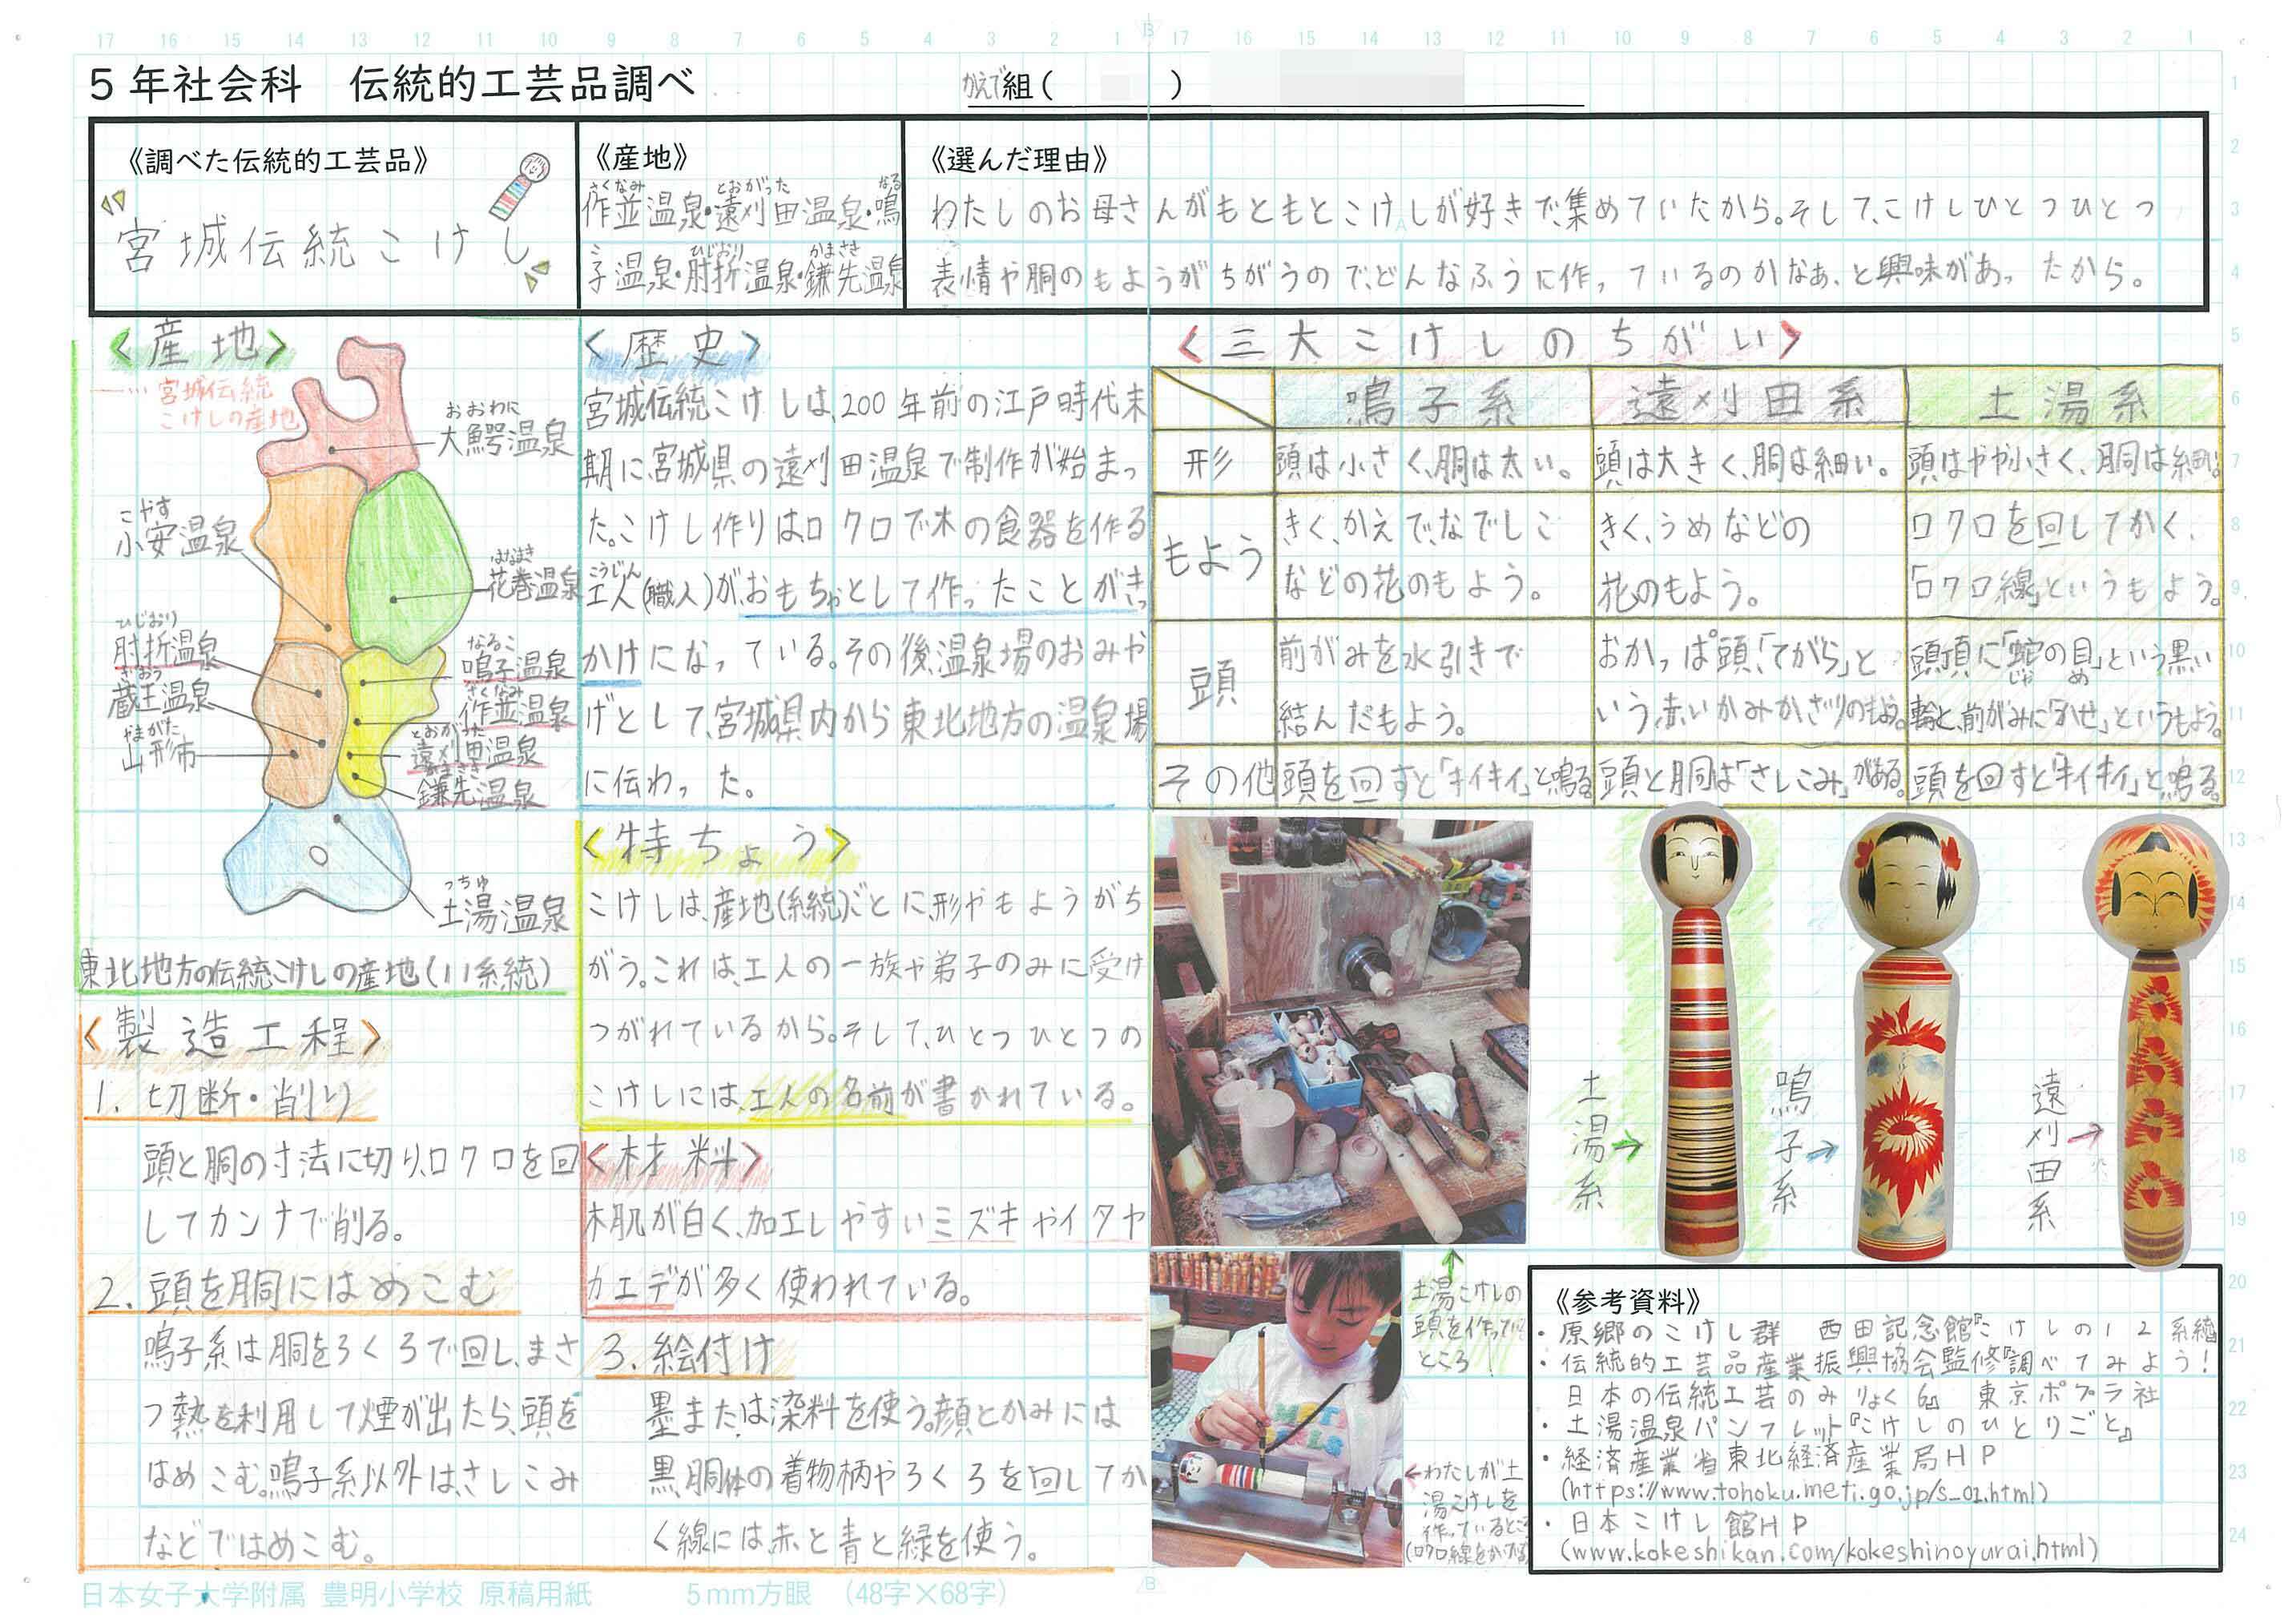 5年社会科　伝統的工芸品調べ
かえで組(　　　)
《調べた伝統的工芸品》
宮城伝統こけし
《産地》
作並温泉・遠刈田温泉・鳴
さくなみ　とおがった　なる
子温泉・肘折温泉・鎌先温泉
こ　ひじおり　かまさき
《選んだ理由》
わたしのお母さんがもともとこけしが好きで、集めていたから。そして、こけしひとつひとつ
表情や胴のもようがちがうので、どんなふうに作っているのかなぁ、と興味があったから。
〈産地〉
…宮城伝統
こけしの産地
おおわに
大鰐温泉
こやす
小安温泉
はなまき
花巻温泉
ひじおり
肘折温泉
ざおう
蔵王温泉
やまがた
山形市
なるこ
鳴子温泉
さくなみ
作並温泉
とおがった
遠刈田温泉
かまさき
鎌先温泉
つちゆ
土湯温泉
東北地方の伝統こけしの産地(11系統)
〈製造工程〉
1. 切断・削り
頭と胴の寸法に切り、ロクロを回
してカンナで削る。
2. 頭を胴にはめこむ
鳴子系は胴をろくろで回し、まさ
つ熱を利用して煙が出たら、頭を
はめこむ。鳴子系以外は、さしこみ
などではめこむ。
〈歴史〉
宮城伝統こけしは、200年前の江戸時代末
期に、宮城県の遠刈田温泉で制作が始まっ
た。こけし作りはロクロで木の食器を作る
こうじん
工人(職人)が、おもちゃとして作ったことがきっ
かけになっている。その後、温泉場のおみや
げとして、宮城県内から東北地方の温泉場
に伝わった。
〈特ちょう〉
こけしは、産地(系統)ごとに、形やもようがち
がう。これは、工人の一族や弟子のみに受け
つがれているから。そして、ひとつひとつの
こけしには、工人の名前が書かれている。
〈材料〉
木肌が白く、加工しやすいミズキやイタヤ
カエデが多く使われている。
3. 絵付け
墨または染料を使う。顔とかみには
黒、胴体の着物柄やろくろを回してか
く線には赤と青と緑を使う。
〈三大こけしのちがい〉
鳴子系　遠刈田系　土湯系
形　頭は小さく、胴は太い。　頭は大きく、胴は細い。　頭はやや小さく、胴は細い。
もよう　きく、かえで、なでしこ　きく、うめなどの　ロクロを回してかく、
などの花のもよう。　花のもよう。　「ロクロ線」というもよう。
頭　前がみを水引きで　おかっぱ頭、「てがら」と　頭頂に「蛇の目」という黒い
じゃ　め
結んだもよう。　いう、赤いかみかざりのもよう。　輪と、前がみに「かせ」というもよう。
その他　頭を回すと「キイキイ」と鳴る。　頭と胴は「さしこみ」がある。　頭を回すと「キイキイ」と鳴る。
土湯系→
鳴子系→
遠刈田系→
土湯こけしの
頭を作っている
ところ！
←わたしが土
湯こけしを
作っているところ
(ロクロ線をかく所)
《参考資料》
・原郷のこけし群　西田記念館『こけしの12系統』
・伝統的工芸品産業振興協会監修『調べてみよう！
日本の伝統工芸のみりょく6』　東京ポプラ社
・土湯温泉パンフレット『こけしのひとりごと』
・経済産業省東北経済産業局HP
(https://www.tohoku.meti.go.jp/s_02.html)
・日本こけし館HP
(www.kokeshikan.com/kokeshinoyurai.html)
日本女子大学附属 豊明小学校 原稿用紙　5mm方眼　(48字×68字)